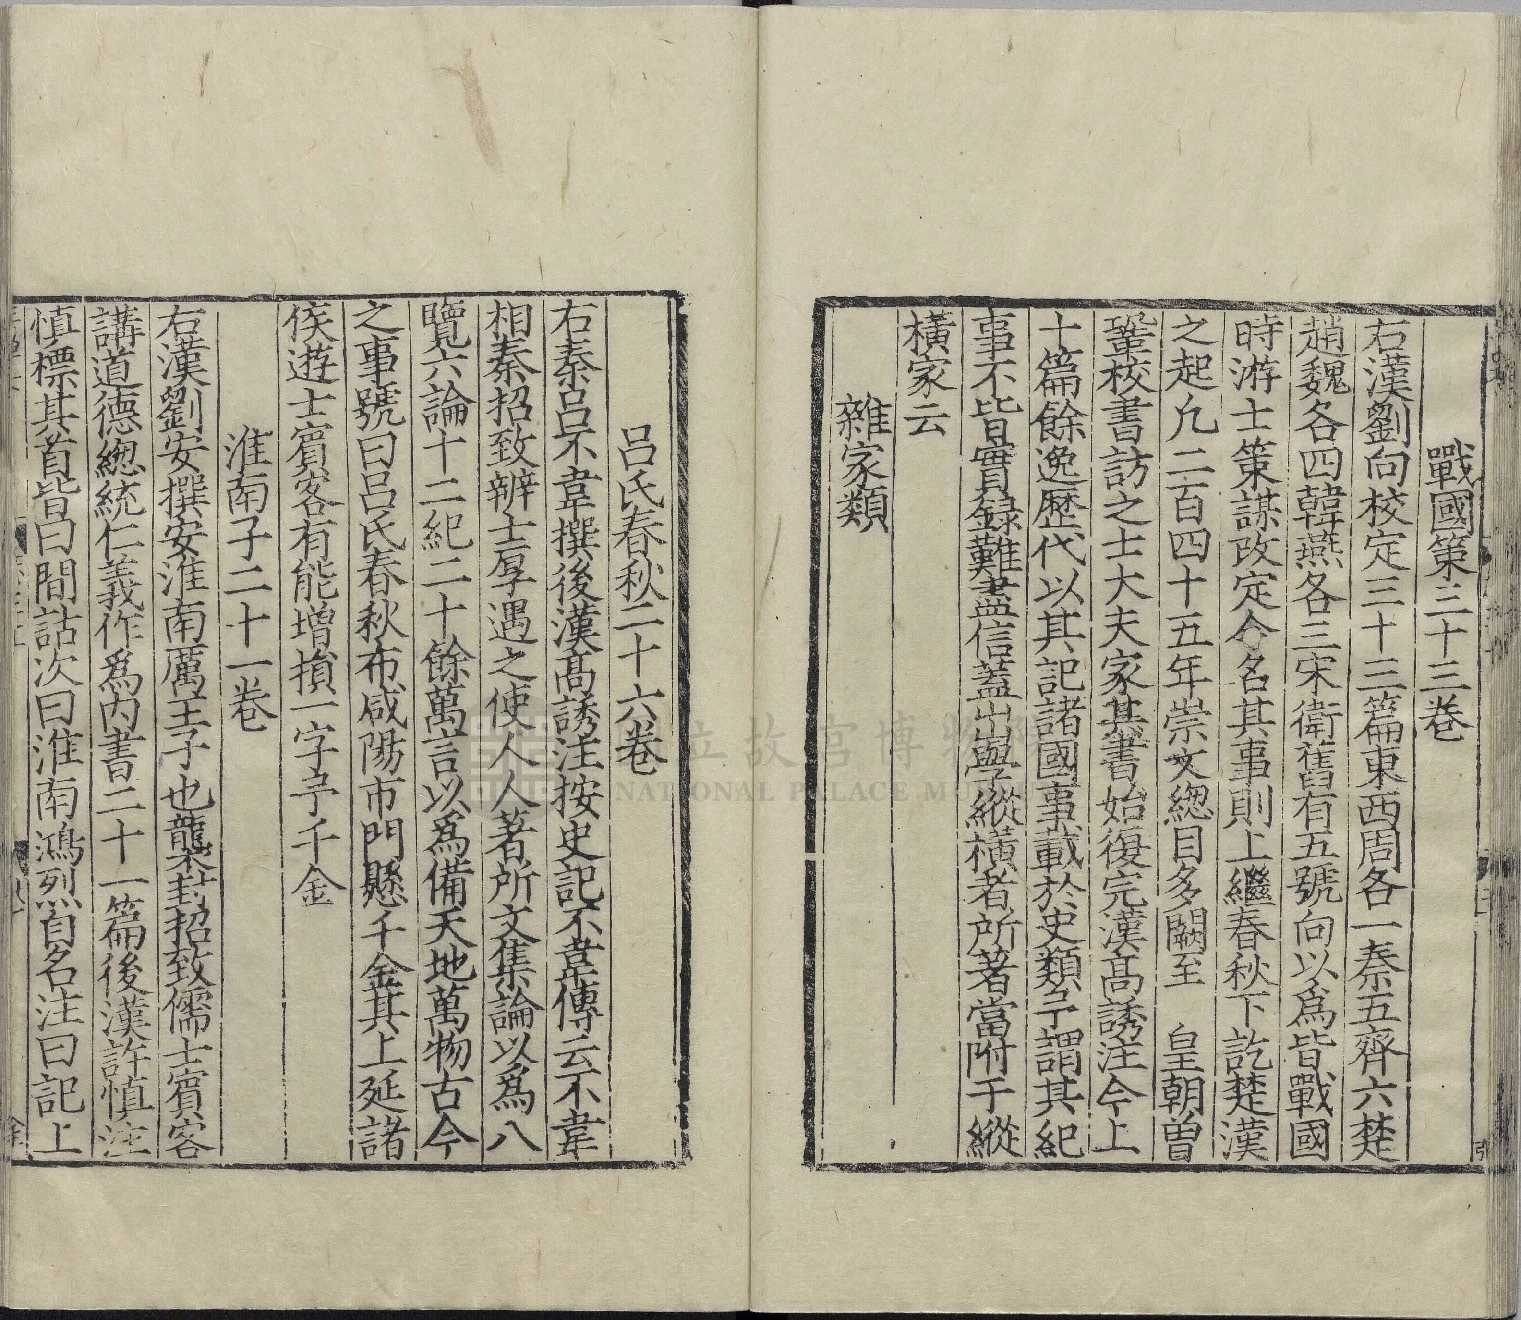 戰國策三十三卷
右漢劉向校定三十三篇東西周各一秦五齊六楚
趙魏各四韓燕各三宋衛舊有五號向以爲皆戰國
時游士策謀改定今名其事則上繼春秋下訖楚漢
之起凡二百四十五年崇文緫目多闕至　皇朝曾
鞏校書訪之士大夫家其書始復完漢高誘注今上
十篇餘逸歷代以其記諸國事載於史類予謂其紀
事不皆實録難盡信蓋出學縱橫者所著當附于縱
橫家云
雜家類
呂氏春秋二十六卷
右秦呂不韋撰後漢高誘注按史記不韋傳云不韋
相秦招致辨士厚遇之使人人著所文集論以爲八
覽六論十二紀二十餘萬言以爲備天地萬物古今
之事號曰呂氏春秋布咸陽市門懸千金其上延諸
侯遊士賓客有能增損一字予千金
淮南子二十一卷
右漢劉安撰安淮南厲王子也襲封招致儒士賓客
講道德緫統仁義作爲内書二十一篇後漢許慎注
慎標其首皆曰間詁次曰淮南鴻烈自名注曰記上
國立故宮博物院
NATIONAL PALACE MUSEUM